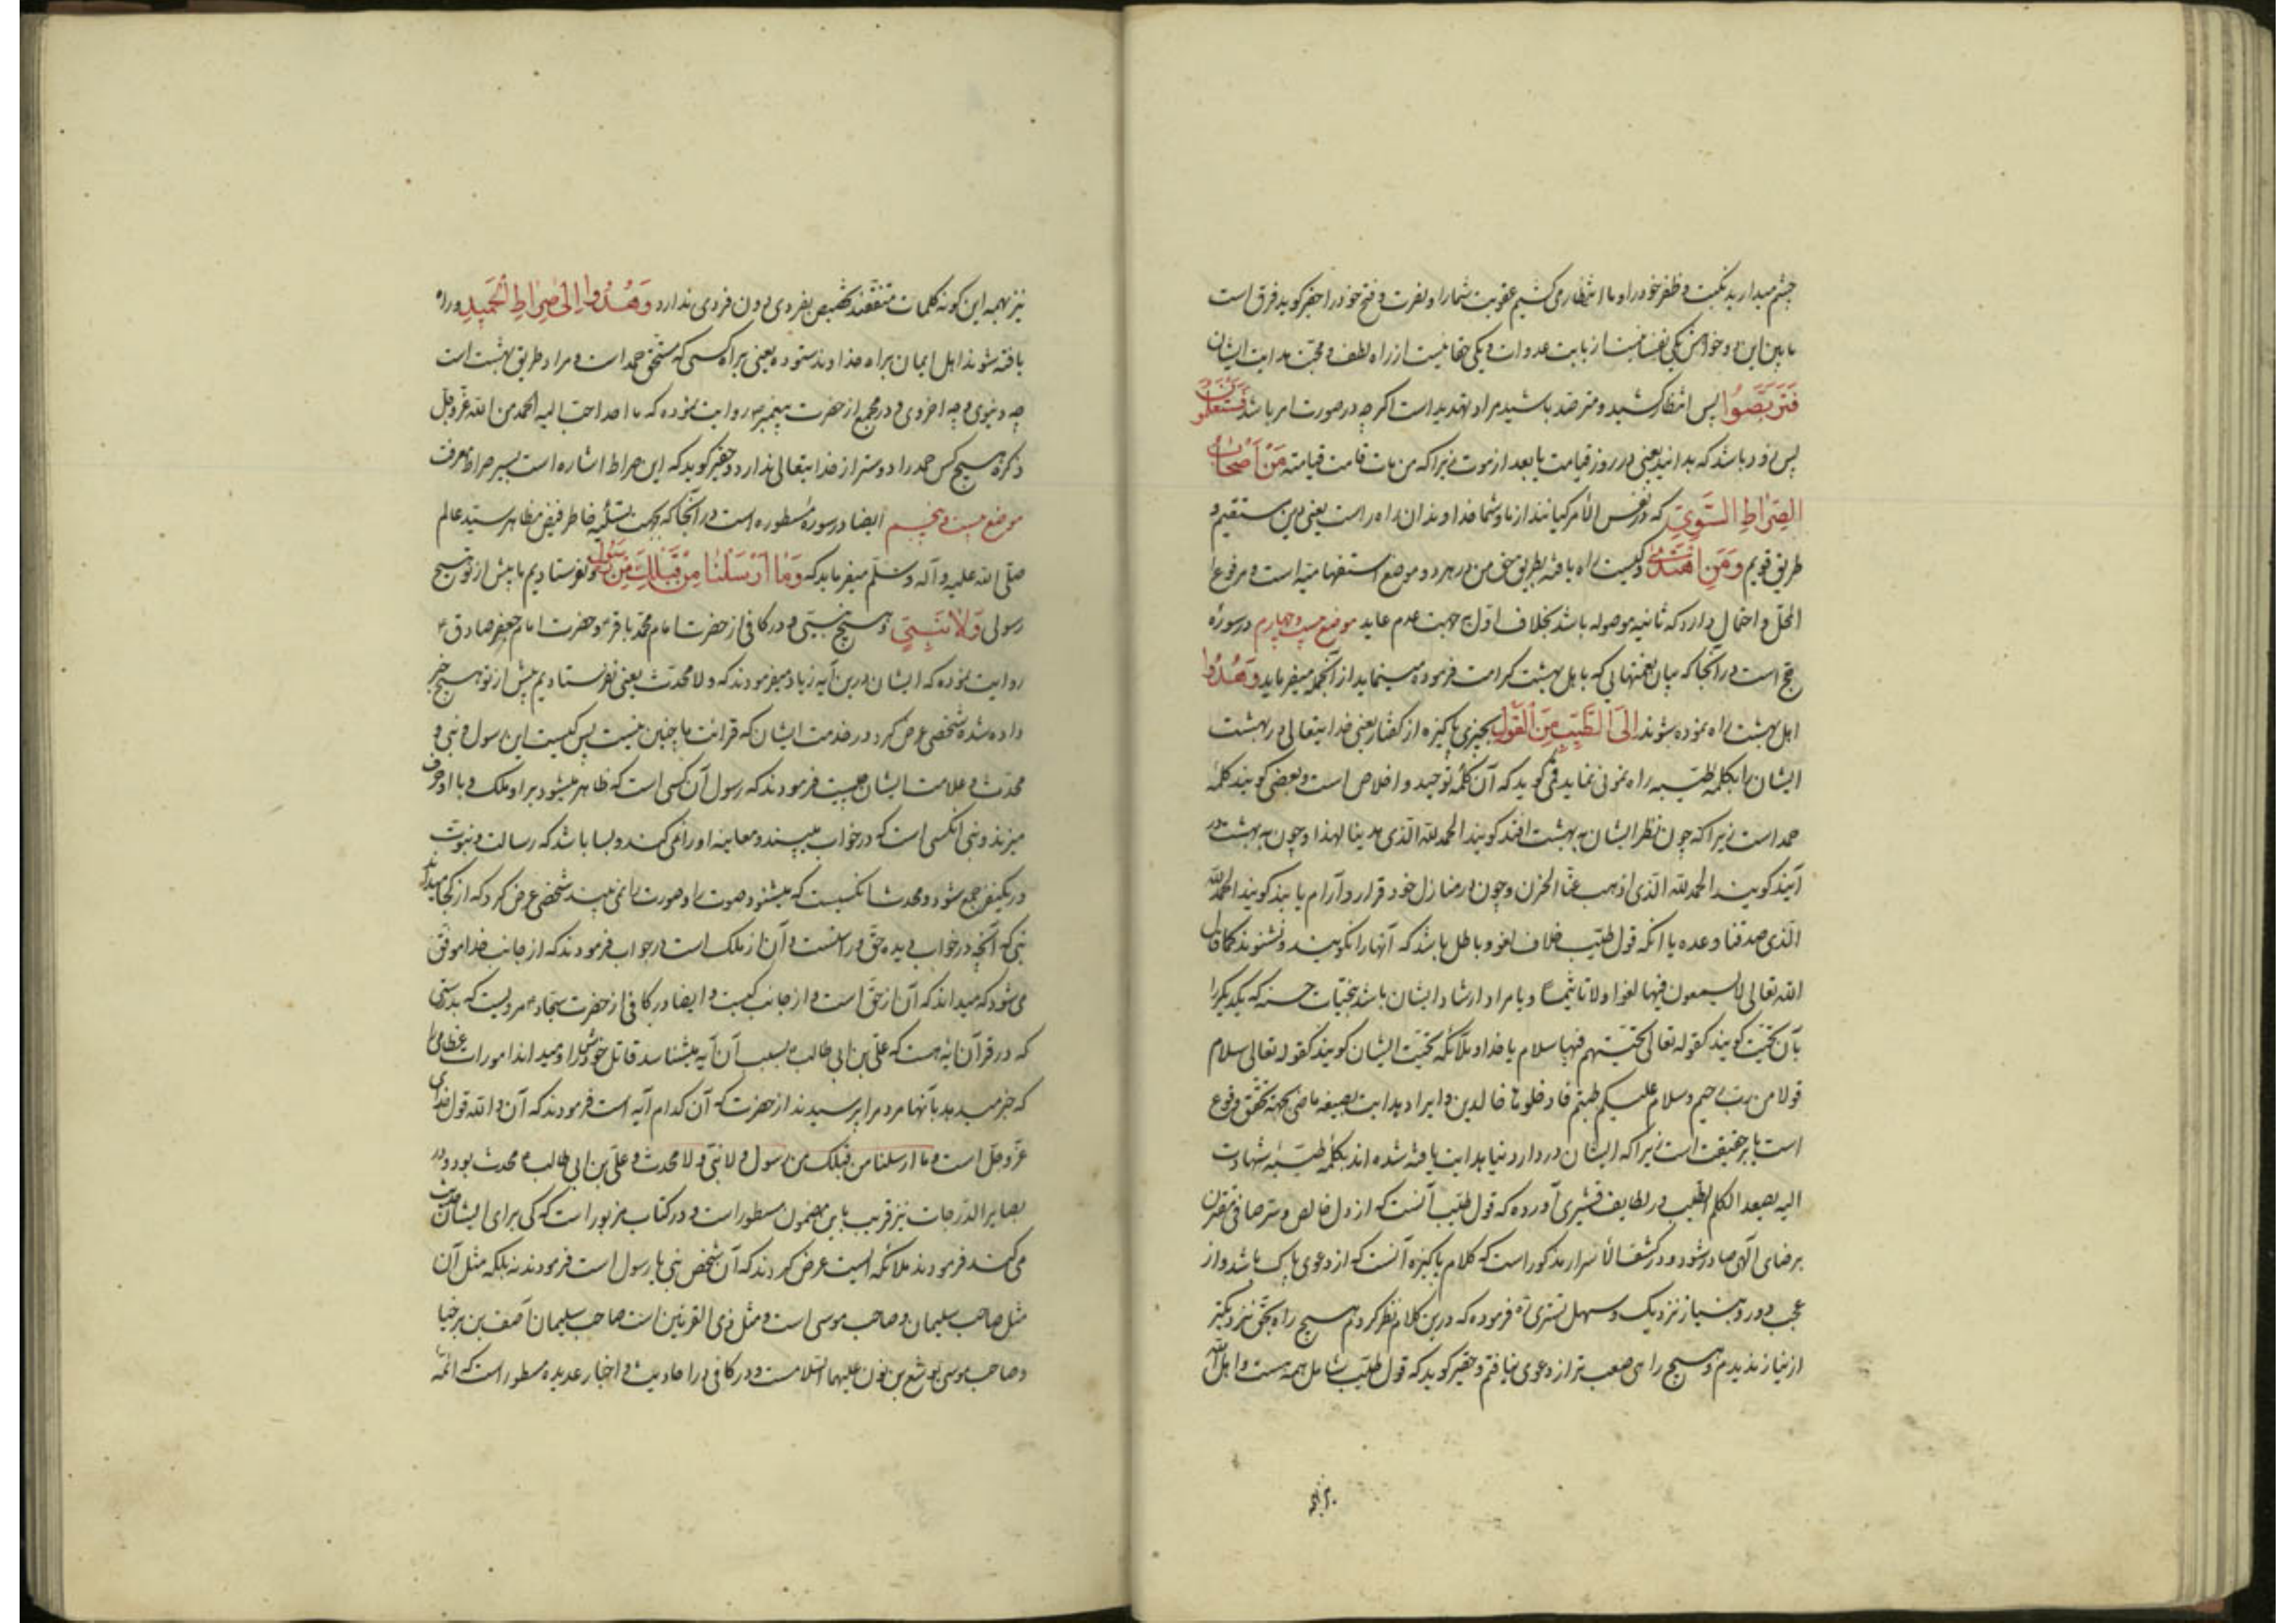 چشم میدارید نکبت و ظفر خود را و ما انتظار می کشیم عقوبت شما را و نصرت و فتح خود را حقیر گوید فرق است
مابین این دو خواهش یکی نفسانیت از بابت عدوان و یکی حقانیت از راه لطف و محبت هدایت ایشان
فَتَرَبَّصُوا پس انتظار کشید و مترصد باشید مراد تهدید است اگر چه در صورت امر باشد فَسَتَعْلَمُونَ
پس زود باشد که بدانید یعنی در روز قیامت یا بعد از موت زیرا که من مات قامت قیامته مَنْ أَصْحَابُ
الصِّرَاطِ السَّوِيِّ که در نفس الامر کیانند از ما و شما خداوندان راه راست یعنی دین مستقیم و
طریق قویم وَمَنِ اهْتَدَىٰ و کیست راه یافته بطریق حق من در هر دو موضع استفهامیه است و مرفوع
المحل و احتمال دارد که ثانیه موصوله باشد بخلاف اول بجهت عدم عاید موضع بیست و چهارم در سورهٔ
حج است در آنجا که بیان نعمتهایی که باهل بهشت کرامت فرموده مینماید از آنجمله میفرماید وَهُدُوا
اهل بهشت راه نموده شوند إِلَى الطَّيِّبِ مِنَ الْقَوْلِ بچیزی پاکیزه از گفتار یعنی خدایتعالی در بهشت
ایشان را بکلمه طیبه راه نمونی نماید قمی گوید که آن کلمه توحید و اخلاص است و بعضی گویند کلمه
حمد است زیرا که چون نظر ایشان به بهشت افتد گویند الحمدلله الذی هدینا لهذا و چون به بهشت در
آیند گویند الحمدلله الذی اذهب عنا الحزن و چون در منازل خود قرار و آرام یابند گویند الحمدلله
الذی صدقنا وعده یا آنکه قول طیب خلاف لغو و باطل باشد که آنها را نگویند و نشنوند کما قال
الله تعالی لا یسمعون فیها لغوا ولا تاثیما و یا مراد ارشاد ایشان باشد بتحیات حسنه که یکدیگر را
بآن تحیت گویند کقوله تعالی تحیتهم فیها سلام یا خدا و ملائکه تحیت ایشان گویند کقوله تعالی سلام
قولا من رب رحیم و سلام علیکم طبتم فادخلوها خالدین و ایراد هدایت بصیغه ماضی بجهة تحقق وقوع
است یا بر حقیقت است زیرا که ایشان در دار دنیا هدایت یافته شده اند بکلمه طیبهٔ شهادت
الیه یصعد الکلم الطیب در لطایف قشیری آورده که قول طیب آنست که از دل خالص و سر صافی مقترن
برضای الهی صادر شود و در کشف الاسرار مذکور است که کلام پاکیزه آنست که از دعوی پاک باشد و از
عجب دور و بنیاز نزدیک و سهل تستری ره فرموده که درین کلام نظر کردم هیچ راه بحق نزدیکتر
از نیاز ندیدم و هیچ راهی صعب تر از دعوی نیافتم و حقیر گوید که قول طیب شامل همه هست و اهل الله
نیز بهمه این گونه کلمات متفقند تخصیص بفردی دون فردی ندارد وَهُدُوا إِلَىٰ صِرَاطِ الْحَمِيدِ و راه
یافته شوند اهل ایمان براه خداوند ستوده یعنی براه کسی که مستحق حمد است و مراد طریق بهشت است
چه دنیوی و چه اخروی و در مجمع از حضرت پیغمبر ص روایت نموده که ما احد احب الیه الحمد من الله عز و جل
ذکره هیچ کس حمد را دوستر از خدایتعالی ندارد و حقیر گوید که این صراط اشاره است بسیر صراط معرفت
موضع بیست و پنجم ایضا در سوره مسطوره است در آنجا که بجهت تسلیه خاطر فیض مظاهر سید عالم
صلی الله علیه و آله وسلم میفرماید که وَمَا أَرْسَلْنَا مِنْ قَبْلِكَ مِنْ رَسُولٍ و نفرستادیم ما پیش از تو هیچ
رسولی وَلَا نَبِيٍّ و هیچ نبیی و در کافی از حضرت امام محمد باقر و حضرت امام جعفر صادق ع
روایت نموده که ایشان درین آیه زیاد میفرمودند که ولا محدث یعنی نفرستادیم پیش از تو هیچ خبر
داده شده شخصی عرض کرد در خدمت ایشان که قرائت ما چنین نیست پس کیست این رسول و نبی و
محدث و علامت ایشان چیست فرمودند که رسول آن کسی است که ظاهر میشود بر او ملک و با او حرف
میزند و نبی آنکسی است که در خواب میبیند و معاینه او را نمی کند و بسا باشد که رسالت و نبوت
در یکنفر جمع شود و محدث آنکسیست که میشنود صوت را و صورت را نمی بیند شخصی عرض کرد که از کجا میداند
نبی که آنچه در خواب دیده حق و راست و آن از ملک است در جواب فرمودند که از جانب خدا موفق
می شود که میداند که آن از حق است و از جانب کیست و ایضا در کافی از حضرت سجاد ع مرویست که بدرستی
که در قرآن آیه هست که علی بن ابی طالب ع بسبب آن آیه میشناسد قاتل خودش را و میداند امورات عظامی را
که خبر میدهد بآنها مردم را پرسیدند از حضرت که آن کدام آیه است فرمودند که آن والله قول خدای
عز و جل است و ما ارسلنا من قبلک من رسول ولا نبی ولا محدث و علی بن ابی طالب ع محدث بود و در
بصایر الدرجات نیز قریب باین مضمون مسطور است و در کتاب مزبور است که کی برای ایشان حدیث
می کند فرمودند ملائکه ایست عرض کردند که آن شخص نبی یا رسول است فرمودند نه بلکه مثل آن
مثل صاحب سلیمان و صاحب موسی است و مثل ذی القرنین است صاحب سلیمان آصف بن برخیا
و صاحب موسی یوشع بن نون علیهما السلامست و در کافی در احادیث و اخبار عدیده مسطور است که ائمه